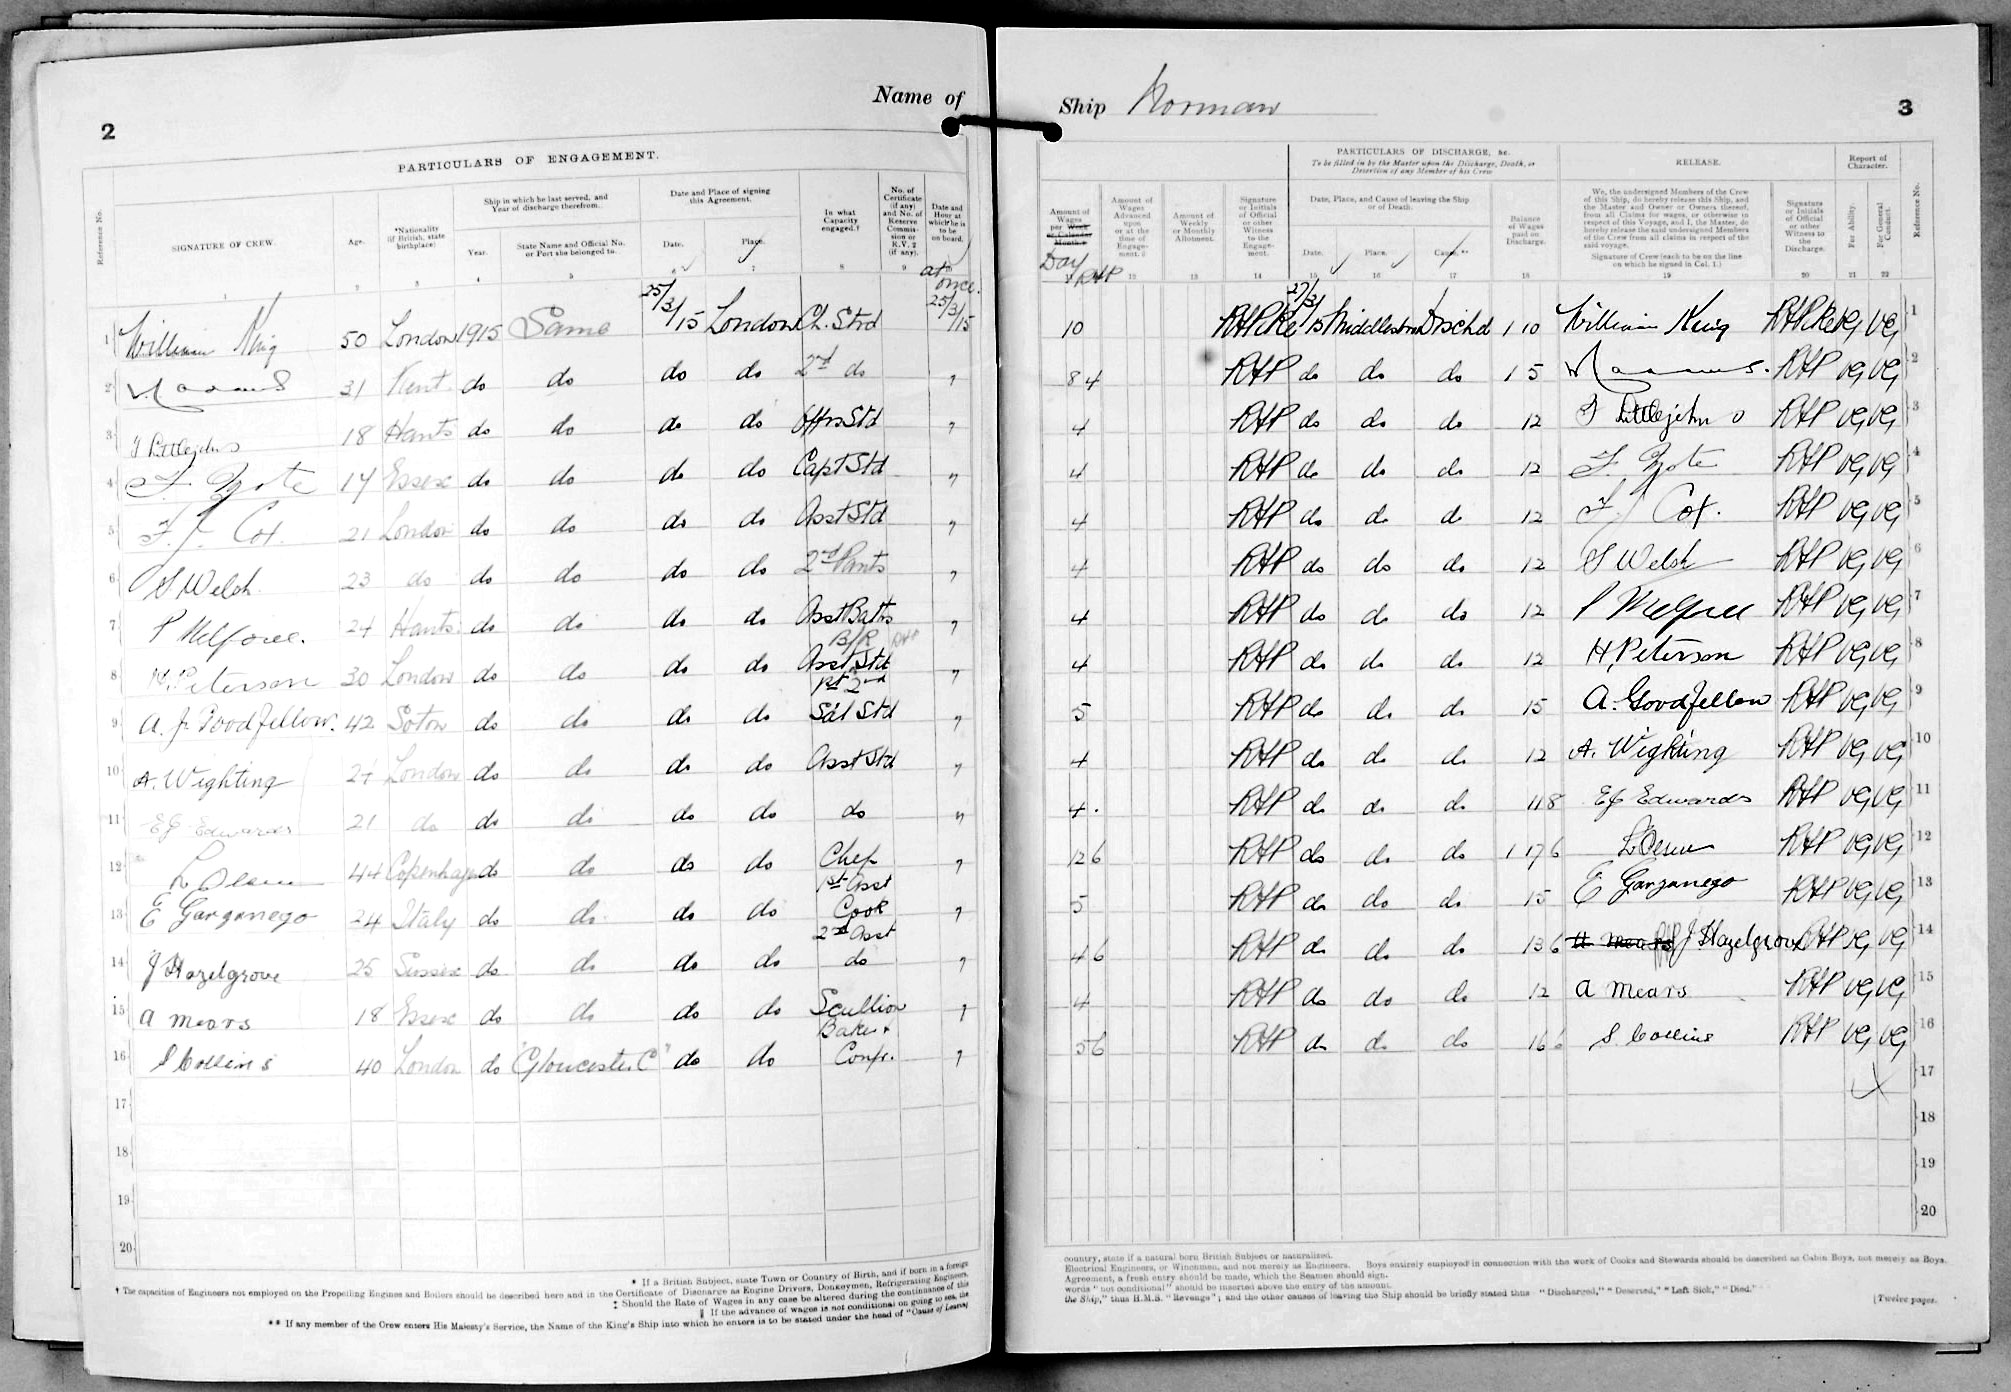 Name of
2
PARTICULARS OF ENGAGEMENT.
Reference No.
SIGNATURE OF CREW.
Age.
*Nationality (if British, state birthplace)
Ship in which he last served, and Year of discharge therefrom.
Year.
State Name and Official No. or Port she belonged to.
Date and Place of signing this Agreement.
Date.
Place.
In what Capacity engaged.†
No. of Certificate (if any) and No. of Reserve Commission or R.V. 2 (if any).
Date and Hour at which he is to be on board.
1 2 3 4 5 6 7 8 9 10
at once.
1 William King 50 London 1915 Same 25/3/15 London Ch. Std 25/3/15
2 31 Kent do do do do 2nd do "
3 Littlejohn 18 Hants do do do do Offrs Std "
4 14 Essex do do do do Capt Std "
5 F. J. Cox. 21 London do do do do Asst Std "
6 S Welsh 23 do do do do do 2nd Pants "
7 P 24 Hants do do do do Asst Baths "
B/R
8 H. Peterson 30 London do do do do Asst Std "
1st 2nd
9 A. J. Goodfellow. 42 Soton do do do do Sal Std "
10 A. Wighting London do do do do Asst Std "
11 EJ Edwards 21 do do do do do do "
12 L Olsen 44 Copenhagen do do do do Chef "
1st Asst
13 E Garganego 24 Italy do do do do Cook "
2nd Asst
14 J Hazelgrove 25 Sussex do do do do do "
15 A Mears 18 Essex do do do do Scullion "
Baker &
16 S Collins 40 London do "Gloucester C" do do Conf. "
17
18
19
20
* If a British Subject, state Town or Country of Birth, and if born in a foreign
† The capacities of Engineers not employed on the Propelling Engines and Boilers should be described here and in the Certificate of Discharge as Engine Drivers, Donkeymen, Refrigerating Engineers,
‡ Should the Rate of Wages in any case be altered during the continuance of this
|| If the advance of wages is not conditional on going to sea, the
** If any member of the Crew enters His Majesty's Service, the Name of the King's Ship into which he enters is to be stated under the head of "Cause of Leaving
Ship Norman
3
PARTICULARS OF DISCHARGE, &c.
To be filled in by the Master upon the Discharge, Death, or Desertion of any Member of his Crew
RELEASE.
Report of Character.
Amount of Wages per Week or Calendar Month.
Day
RHP
Amount of Wages Advanced upon or at the time of Engagement.
Amount of Weekly or Monthly Allotment.
Signature or Initials of Official or other Witness to the Engagement.
Date, Place, and Cause of leaving the Ship or of Death.
Date.
Place.
Cause.**
Balance of Wages paid on Discharge.
We, the undersigned Members of the Crew of this Ship, do hereby release this Ship, and the Master and Owner or Owners thereof, from all Claims for wages, or otherwise in respect of this Voyage, and I, the Master, do hereby release the said undersigned Members of the Crew from all claims in respect of the said voyage.
Signature of Crew (each to be on the line on which he signed in Col. 1.)
Signature or Initials of Official or other Witness to the Discharge.
For Ability.
For General Conduct.
Reference No.
12 13 14 15 16 17 18 19 20 21 22
10 27/3/15 Middlesbro Dischd 1 10 William King VG VG 1
8 4 RHP do do do 1 5 RHP VG VG 2
4 RHP do do do 12 Littlejohn RHP VG VG 3
4 RHP do do do 12 RHP VG VG 4
4 RHP do do do 12 F. J. Cox. RHP VG VG 5
4 RHP do do do 12 S Welsh RHP VG VG 6
4 RHP do do do 12 P RHP VG VG 7
4 RHP do do do 12 H. Peterson RHP VG VG 8
5 RHP do do do 15 A. Goodfellow RHP VG VG 9
4 RHP do do do 12 A. Wighting RHP VG VG 10
4 RHP do do do 118 EJ Edwards RHP VG VG 11
12 6 RHP do do do 1 17 6 L Olsen RHP VG VG 12
5 RHP do do do 15 E Garganego RHP VG VG 13
4 6 RHP do do do 13 6 A Mears RHP J Hazelgrove RHP VG VG 14
4 RHP do do do 12 A Mears RHP VG VG 15
5 6 RHP do do do 16 6 S. Collins RHP VG VG 16
17
18
19
20
country, state if a natural born British Subject or naturalized.
Electrical Engineers, or Winchmen, and not merely as Engineers. Boys entirely employed in connection with the work of Cooks and Stewards should be described as Cabin Boys, not merely as Boys.
Agreement, a fresh entry should be made, which the Seamen should sign.
words "not conditional" should be inserted above the entry of the amount.
the Ship," thus H.M.S. "Revenge"; and the other causes of leaving the Ship should be briefly stated thus "Discharged," "Deserted," "Left Sick," "Died."
[Twelve pages.